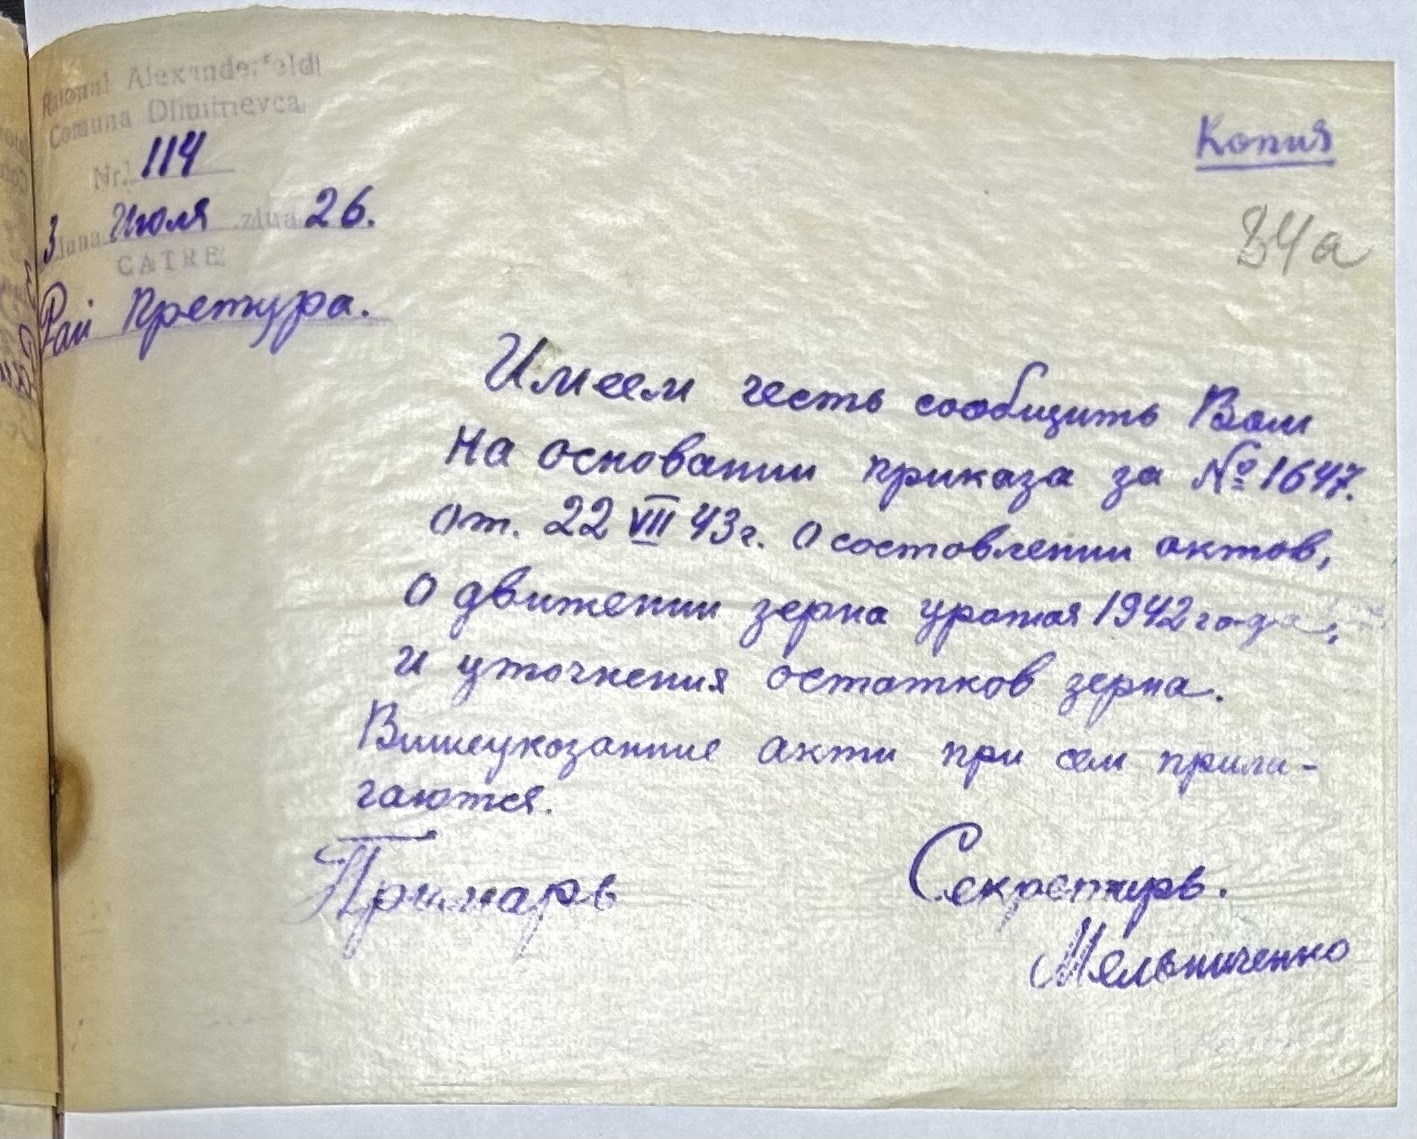 Raional Alexanderfeldi
Comuna Dimitrievca
Nr. 114
З luna Июля ziua 26.
CATRE
Рай Претура.
Копия
84а
Имеем честь сообщить Вам
на основании приказа за № 1647.
от. 22 VII 43г. о состовлении актов,
о движении зерна урожая 1942 года,
и уточнения остатков зерна.
Вишеуказанние акти при сем прили-
гаются.
Примарь
Секретарь.
Мельниченко